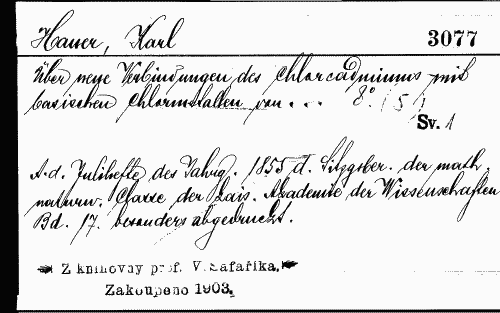 Hauer, Karl
3077
Über neue Verbindungen des Chlorcadmiums mit
basischen Chlormetallen von . . . 8° (5
Sv. 1
A. d. Julihefte des Jahrg. 1855 d. Sitzgsber. der math.
naturw. Classe der kais. Akademie der Wissenschaften
Bd. 17. besonders abgedruckt.
Z knihovny prof. V. Šafaříka.
Zakoupeno 1903.